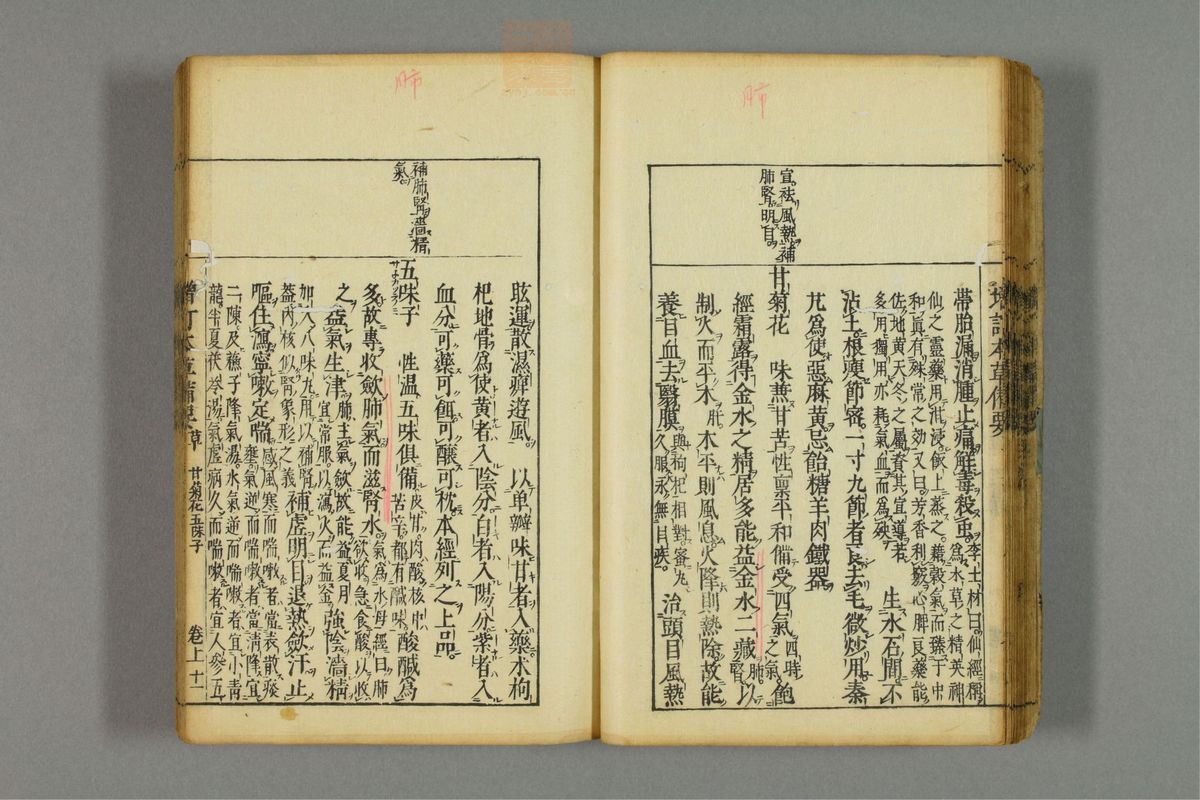 肺
帶胎漏消腫止痛解毒殺虫李士材曰仙經稱
為水草之精英神
仙之靈藥用泔浸飯上蒸之藉穀氣而臻于中
和眞有殊常之効又曰芳香利竅心脾良藥能
佐地黃天冬之屬資其宣導若
多用獨用亦耗氣血而為殃
生水石間不
沾土根瘦節密一寸九節者良去毛微炒用秦
艽為使惡麻黃忌飴糖羊肉鐵器
宣祛風熱補
肺腎明目
甘菊花 味兼甘苦性稟平和備受四氣四時
之氣飽
經霜露得金水之精居多能益金水二藏肺
腎以
制火而平木肝木平則風息火降則熱除故能
養目血去翳膜與枸杞相對蜜丸
久服永無目疾治頭目風熱
肺
眩運散濕痺遊風 以单瓣味甘者入藥朮枸
杞地骨為使黃者入陰分白者入陽分紫者入
血分可藥可餌可釀可枕本經列之上品
補肺腎濇精
氣
五味子 性温五味俱備皮甘肉酸核中
苦辛都有醎味酸醎為
多故專收斂肺氣而滋腎水氣為水母經曰肺
欲收急食酸以收
之益氣生津肺主氣斂故能益夏月
宜常服以瀉火而益金強陰濇精
加入八味丸用以補腎
蓋內核似腎象形之義補虛明目退熱斂汗止
嘔住瀉寧嗽定喘感風寒而喘嗽者當表散痰
壅氣逆而喘嗽者當清降宜
二陳及蘇子降氣湯水氣逆而喘嗽者宜小青
龍半夏茯苓湯氣虛病久而喘嗽者宜人參五
增訂本草備要
甘菊花五味子
卷上 十一